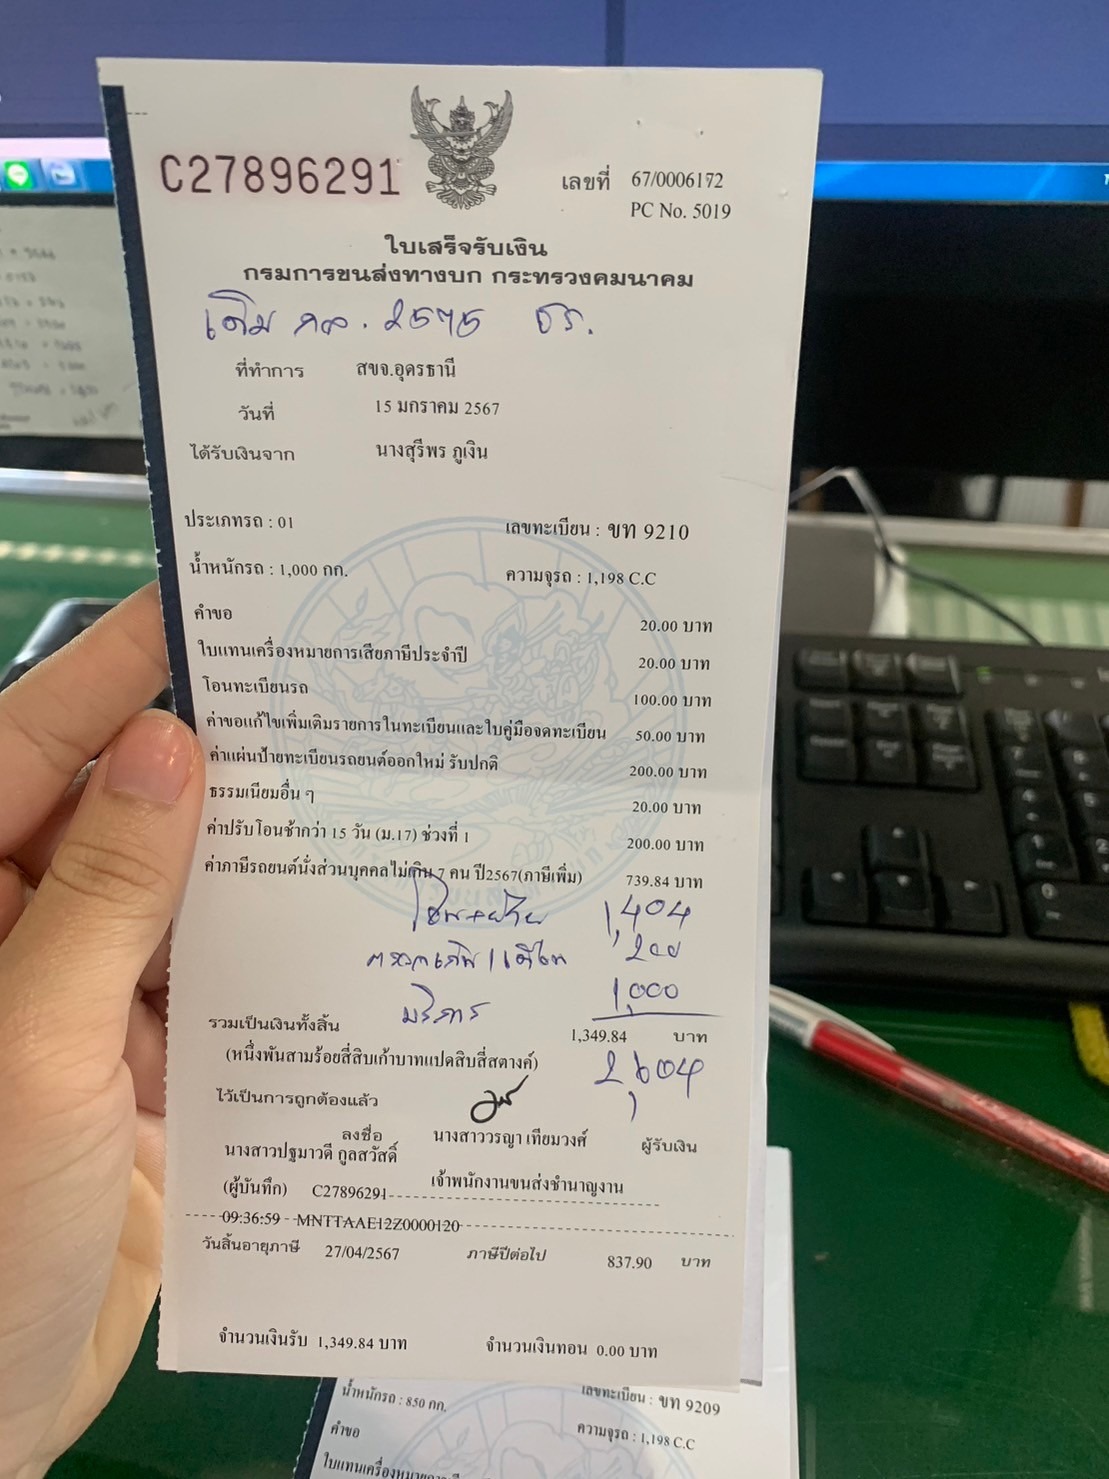 C27896291
เลขที่ 67/0006172
PC No. 5019
ใบเสร็จรับเงิน
กรมการขนส่งทางบก กระทรวงคมนาคม
เดิม 2575 อร.
ที่ทำการ สขจ.อุดรธานี
วันที่ 15 มกราคม 2567
ได้รับเงินจาก นางสุรีพร ภูเงิน
ประเภทรถ : 01 เลขทะเบียน : ขท 9210
น้ำหนักรถ : 1,000 กก. ความจุรถ : 1,198 C.C
คำขอ 20.00 บาท
ใบแทนเครื่องหมายการเสียภาษีประจำปี 20.00 บาท
โอนทะเบียนรถ 100.00 บาท
ค่าขอแก้ไขเพิ่มเติมรายการในทะเบียนและใบคู่มือจดทะเบียน 50.00 บาท
ค่าแผ่นป้ายทะเบียนรถยนต์ออกใหม่ รับปกติ 200.00 บาท
ธรรมเนียมอื่น ๆ 20.00 บาท
ค่าปรับโอนช้ากว่า 15 วัน (ม.17) ช่วงที่ 1 200.00 บาท
ค่าภาษีรถยนต์นั่งส่วนบุคคลไม่เกิน 7 คน ปี2567(ภาษีเพิ่ม) 739.84 บาท
1,404
200
บริการ 1,000
รวมเป็นเงินทั้งสิ้น 1,349.84 บาท
(หนึ่งพันสามร้อยสี่สิบเก้าบาทแปดสิบสี่สตางค์) 2,604
ไว้เป็นการถูกต้องแล้ว
ลงชื่อ นางสาววรญา เทียมวงศ์ ผู้รับเงิน
นางสาวปฐมาวดี กูลสวัสดิ์
(ผู้บันทึก) C27896291 เจ้าพนักงานขนส่งชำนาญงาน
09:36:59 MNTTAAE12Z0000120
วันสิ้นอายุภาษี 27/04/2567 ภาษีปีต่อไป 837.90 บาท
จำนวนเงินรับ 1,349.84 บาท จำนวนเงินทอน 0.00 บาท
น้ำหนักรถ : 850 กก. เลขทะเบียน : ขท 9209
คำขอ ความจุรถ : 1,198 C.C